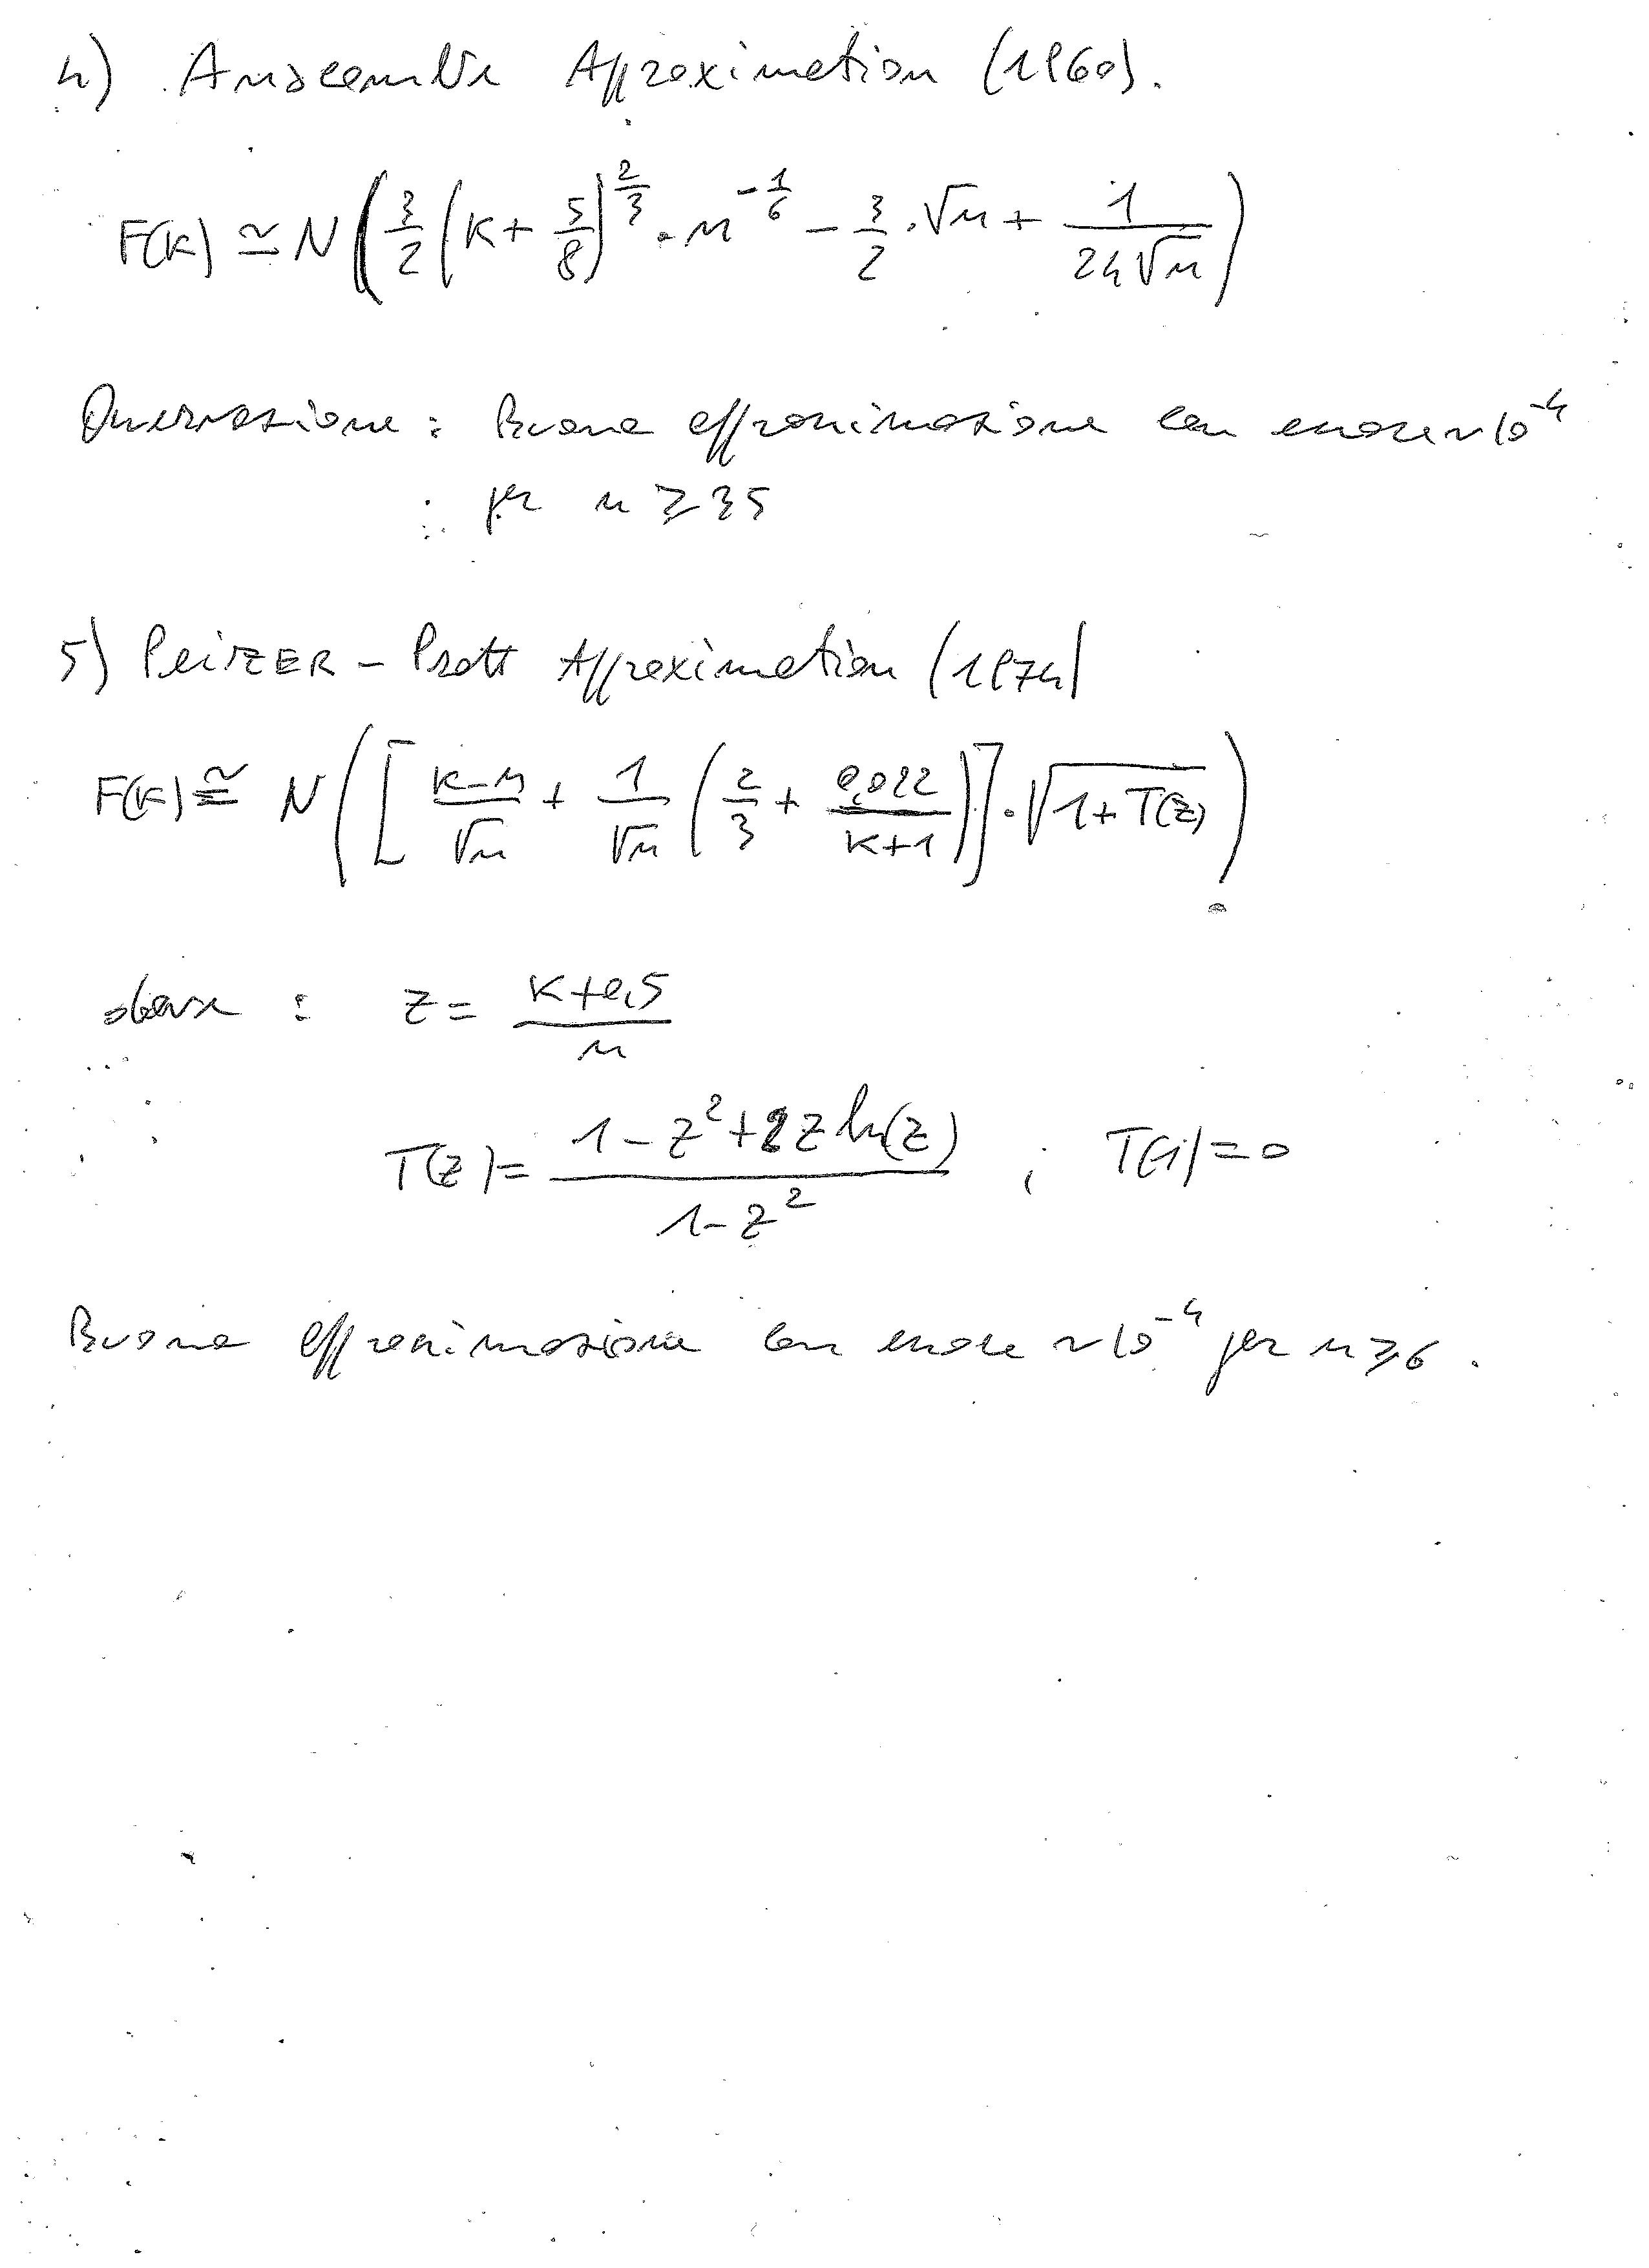 4) Anscombe Approximation (1960).
F(K) ≃ N(3/2 (K + 5/8)^(2/3) · n^(-1/6) - 3/2 · √n + 1/(24√n))
Osservazione : Buona approssimazione con errore ~ 10^-4
per n ≥ 35
5) PeizER - Pratt Approximation (1974)
F(K) ≅ N([(K-n)/√n + 1/√n (2/3 + 0,022/(K+1))] · √(1+T(z)))
dove : z = (K+0,5)/n
T(z) = (1 - z² + 2z ln(z))/(1 - z²) ; T(1) = 0
Buona approssimazione con errore ~ 10^-4 per n ≥ 6 .